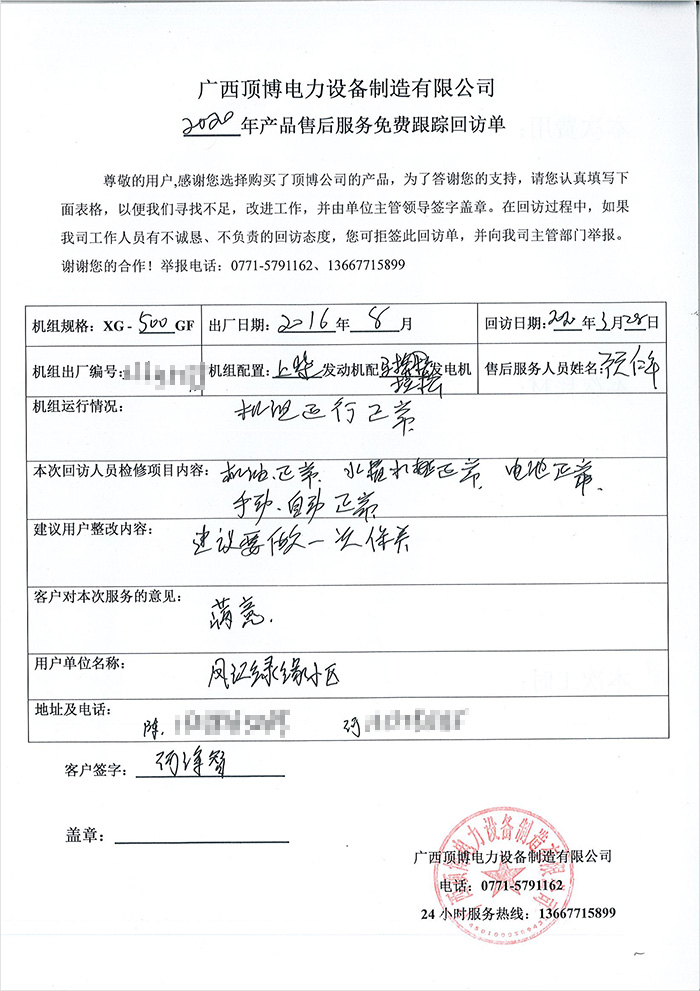 广西顶博电力设备制造有限公司
2020年产品售后服务免费跟踪回访单
尊敬的用户,感谢您选择购买了顶博公司的产品，为了答谢您的支持，请您认真填写下
面表格，以便我们寻找不足，改进工作，并由单位主管领导签字盖章。在回访过程中，如果
我司工作人员有不诚恳、不负责的回访态度，您可拒签此回访单，并向我司主管部门举报。
谢谢您的合作！举报电话：0771-5791162、13667715899
机组规格：XG-500GF 出厂日期：2016年8月 回访日期：2020年3月28日
机组出厂编号： 机组配置：上柴发动机配 发电机 售后服务人员姓名：
机组运行情况： 机组运行正常
本次回访人员检修项目内容：机油.正常. 水箱水 正常. 电池正常.
手动.自动正常
建议用户整改内容： 建议要做一次保养
客户对本次服务的意见： 满意.
用户单位名称： 凤江绿缘小区
地址及电话： 陈. 何
客户签字：
盖章：
广西顶博电力设备制造有限公司
电话：0771-5791162
24小时服务热线：13667715899